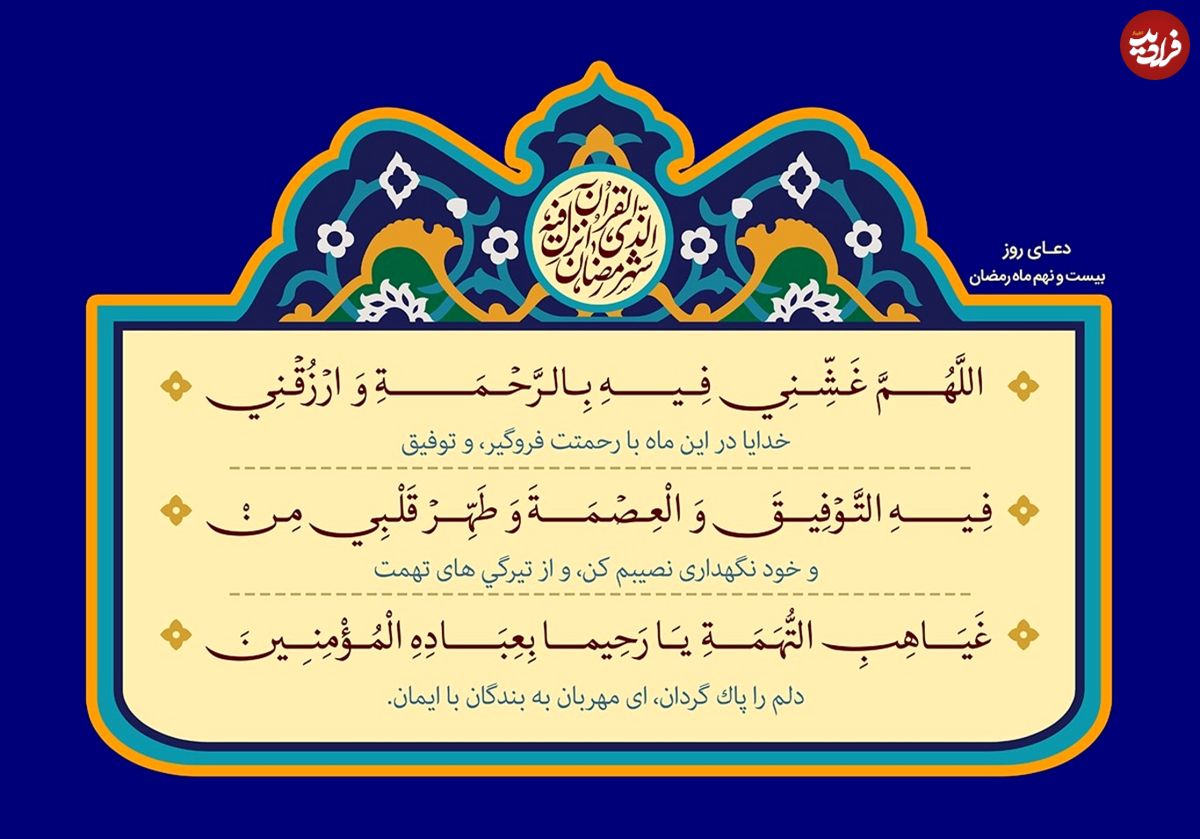 فرادید
دعای روز
بیست و نهم ماه رمضان
شهر رمضان الذی انزل فیه القرآن
اللَّهُمَّ غَشِّنِي فِيهِ بِالرَّحْمَةِ وَ ارْزُقْنِي
خدایا در این ماه با رحمتت فروگیر، و توفیق
فِيهِ التَّوْفِيقَ وَ الْعِصْمَةَ وَ طَهِّرْ قَلْبِي مِنْ
و خود نگهداری نصیبم کن، و از تیرگي های تهمت
غَيَاهِبِ التُّهَمَةِ يَا رَحِيما بِعِبَادِهِ الْمُؤْمِنِينَ
دلم را پاك گردان، ای مهربان به بندگان با ایمان.